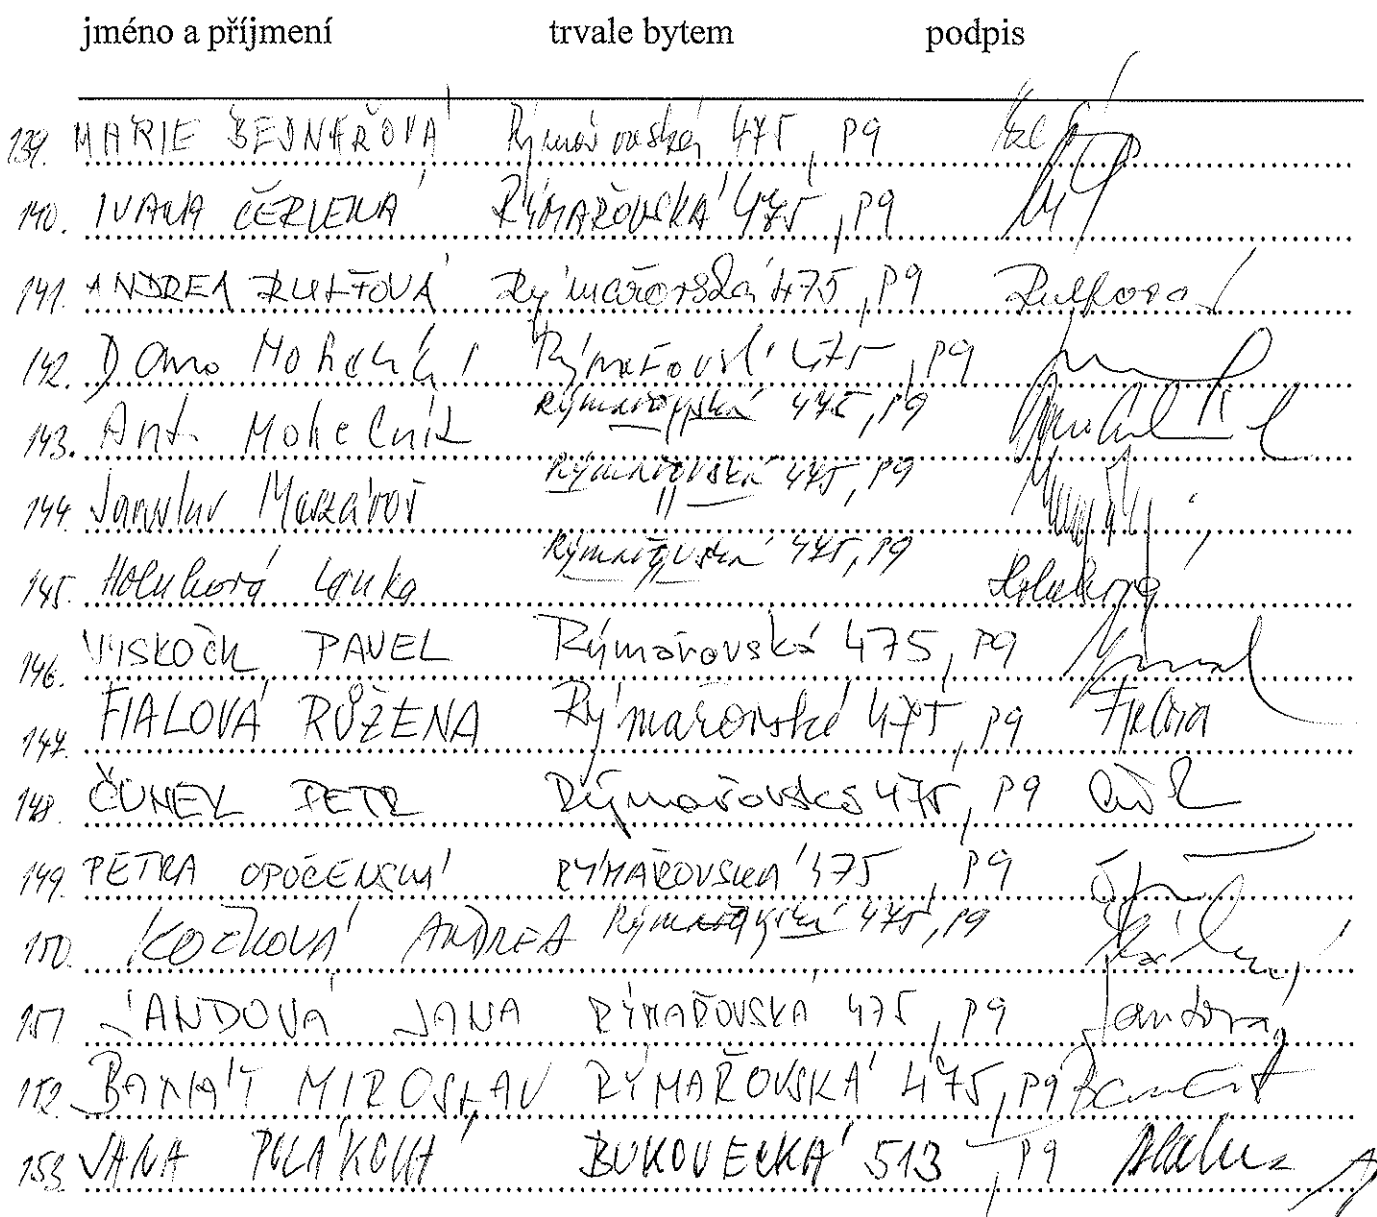 jméno a příjmení trvale bytem podpis
139. MARIE BEDNAŘOVÁ Rýmařovská 475, P9
140. IVANA ČERVENÁ RÝMAŘOVSKÁ 475, P9
141. ANDREA Rýmařovská 475, P9
142. Rýmařovsk 475, P9
143. Ant. Mohelník Rýmařovská 475, P9
144. Jaroslav Rýmařovská 475, P9
145. Holubová Lenka Rýmařovská 475, P9 Holubová
146. VYSKOČIL PAVEL Rýmařovská 475, P9
147. FIALOVÁ RŮŽENA Rýmařovská 475, P9 Fialová
148. ČUNEK PETR Rýmařovská 475, P9
149. PETRA OPOČENSKÁ RÝMAŘOVSKÁ 475, P9
150. KOČKOVÁ ANDREA Rýmařovská 475, P9
151 JANDOVÁ JANA RÝMAŘOVSKÁ 475, P9 Jandová
152. BANÁT MIROSLAV RÝMAŘOVSKÁ 475, P9
153. JANA POLÁKOVÁ BUKOVECKÁ 513, P9